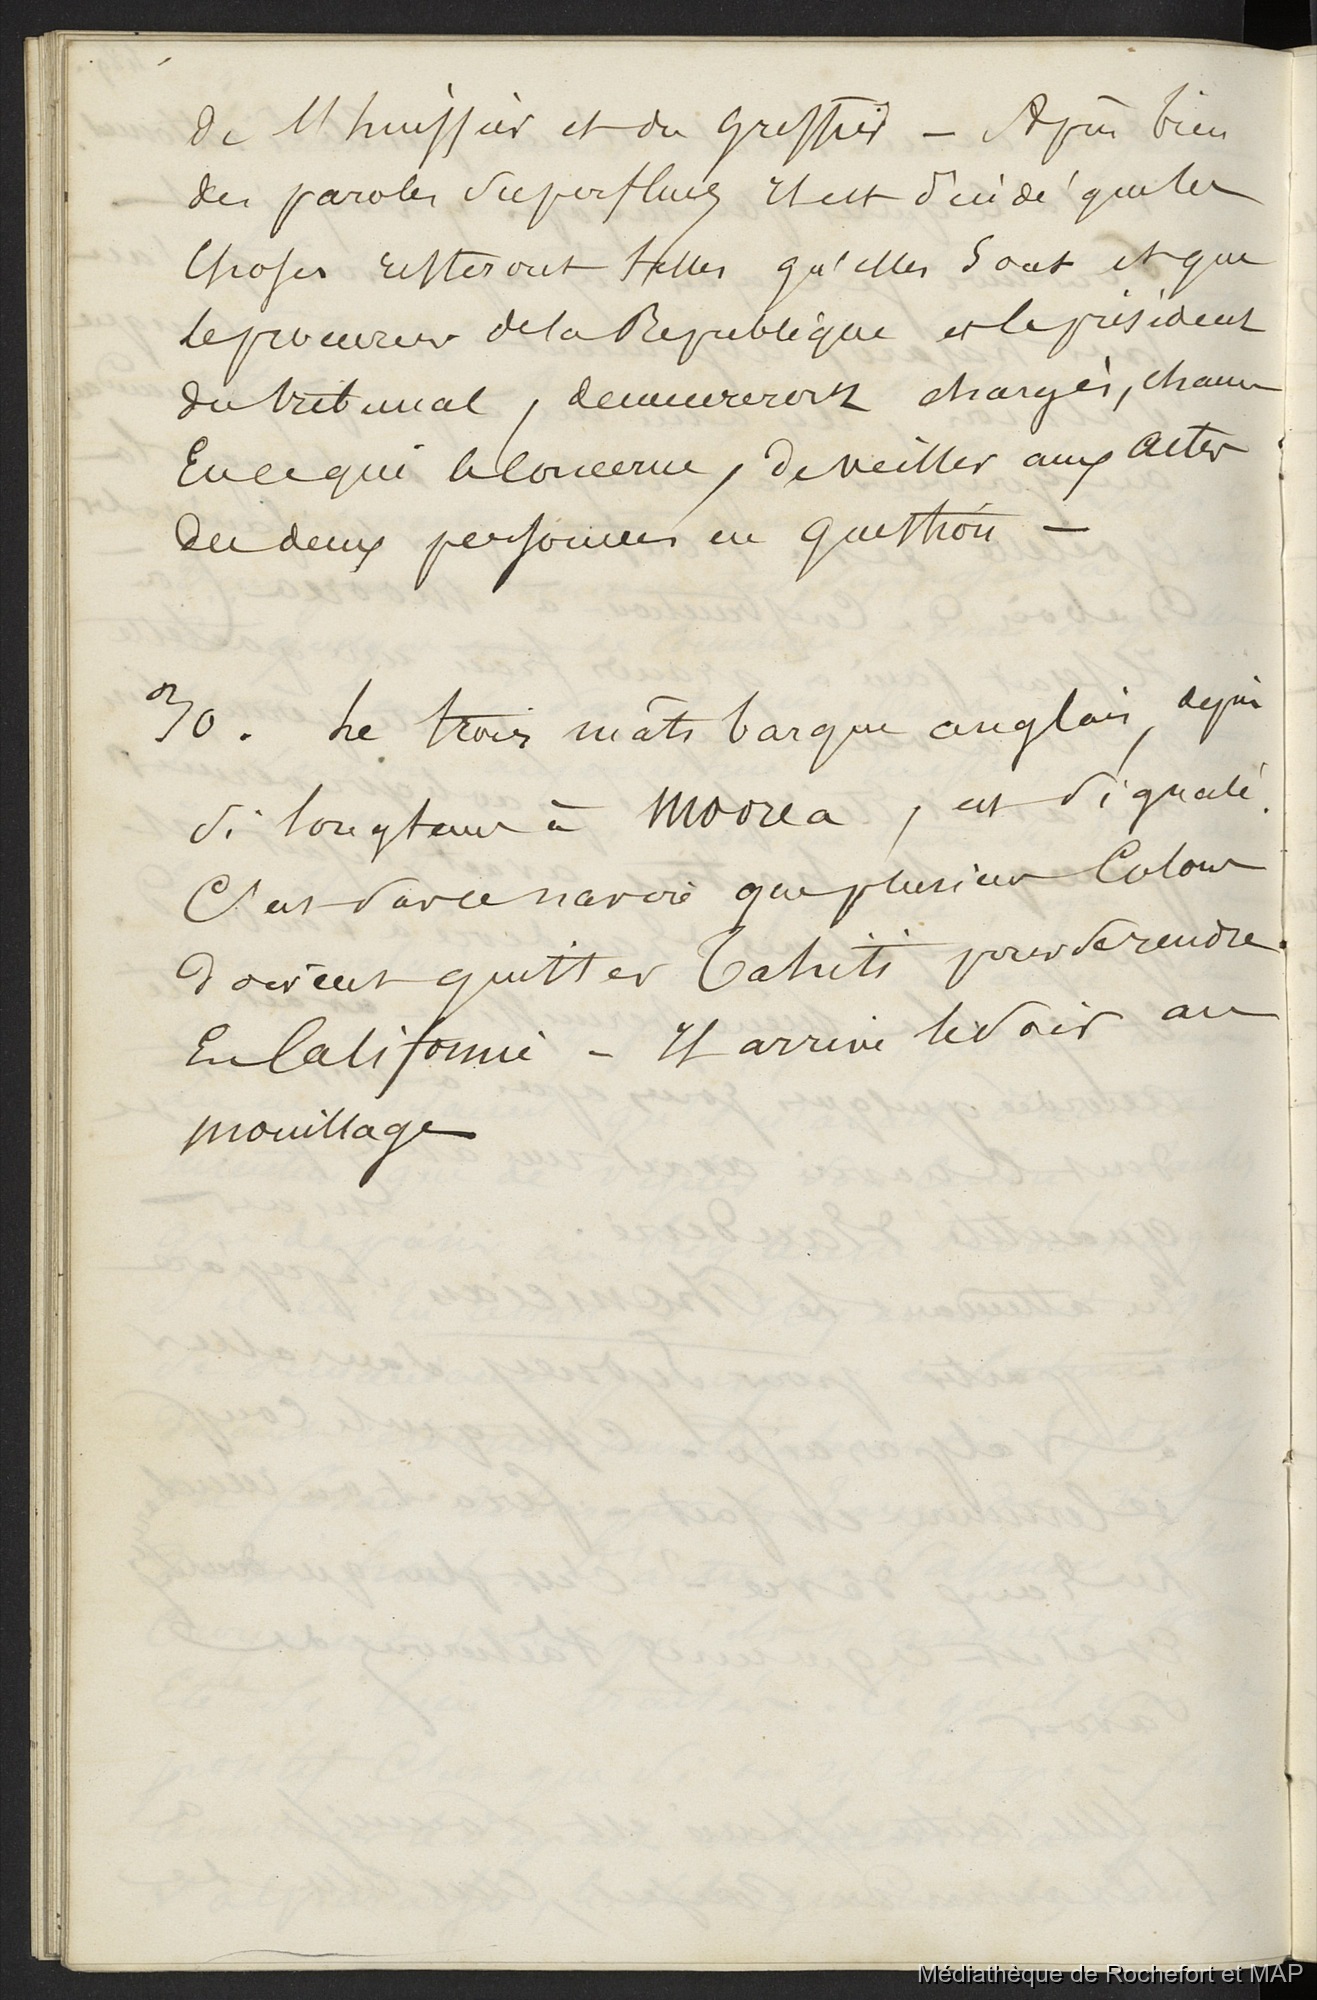 de l'huissier et du greffier – Après bien
des paroles superflues il est décidé que les
choses resteront telles qu'elles sont et que
le procureur de la République et le président
du tribunal, demeureront chargés, chacun
en ce qui le concerne, de veiller aux actes
des deux personnes en question –
30. Le trois mâts barque anglais, depuis
si longtems à Moorea, est signalé.
C'est sur ce navire que plusieurs colons
doivent quitter Tahiti pour se rendre
en Californie – Il arrive le soir au
mouillage
Médiathèque de Rochefort et MAP